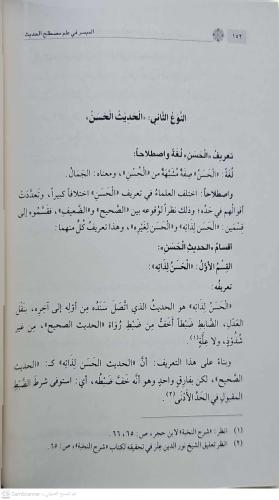 ١٥٢
الميسر في علم مصطلح الحديث
النَّوعُ الثَّاني: «الحَدِيثُ الحَسَنُ»
تعريفُ «الحَسَنِ» لُغَةً واصطلاحاً:
لُغَةً: «الحَسَنُ» صِفةٌ مُشَبَّهَةٌ من «الحُسْنِ»، ومعناه: الجَمَال.
واصطلاحاً: اختلف العلماءُ في تعريف «الحَسَنِ» اختلافاً كبيراً، وتَعدَّدَتْ
أقوالُهم في حَدِّه؛ وذلك نظراً لوُقوعه بين «الصَّحيح» و«الضَّعيف»، فقَسَّموه إلى
قِسْمَين: «الحَسَن لِذَاتِه» و«الحَسَن لِغَيْرِه»، وهذا تعريفُ كُلٍّ منهما:
أقسامُ «الحديثِ الحَسَنِ»:
القِسْمُ الأوَّلُ: «الحَسَنُ لِذَاتِه»:
تعريفُه:
«الحَسَنُ لِذَاتِه» هو الحديثُ الذي اتَّصَلَ سَنَدُه مِن أوَّلِه إلى آخِرِه، بنَقْلِ
العَدْلِ، الضَّابِطِ ضَبْطاً أَخَفَّ مِن ضَبْطِ رُوَاةِ «الحديث الصحيح»، مِن غيرِ
شُذُوذٍ، ولا عِلَّةٍ(١).
وبناءً على هذا التعريفِ: أنَّ «الحديثَ الحَسَنَ لِذَاتِه» كـ: «الحديثِ
الصَّحيحِ»، لكن بفارقٍ واحدٍ وهو أنه خَفَّ ضَبْطُه، أي: استوفى شرطَ الضَّبْطِ
المقبولِ في الحَدِّ الأَدْنَى(٢).
(١) انظر: «شرح النخبة» لابن حجر، ص: ٦٥، ٦٦.
(٢) انظر تعليق الشيخ نور الدين عِتْر في تحقيقه لكتاب «شرح النخبة»، ص: ٦٥.
CS CamScanner